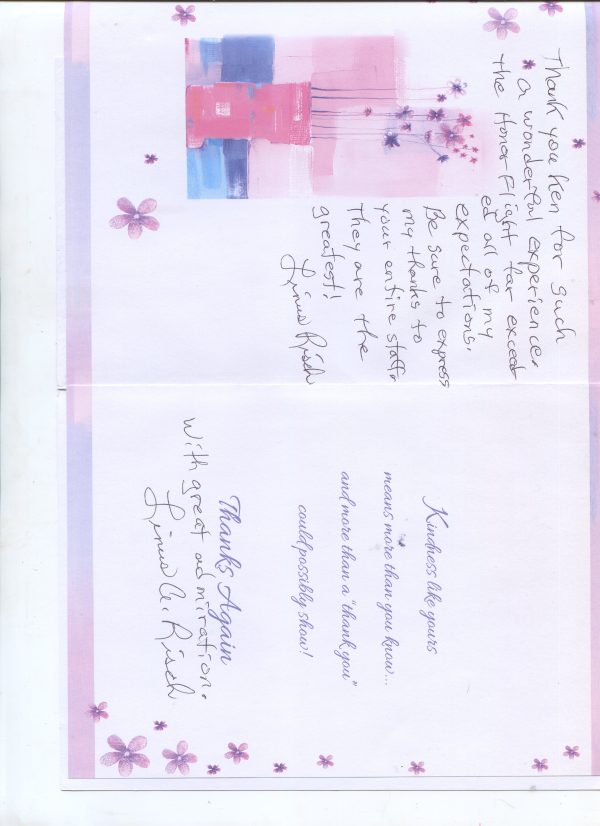 Thank you Ken for such
a wonderful experience.
the Honor Flight far exceed
ed all of my
expectations.
Be sure to express
my thanks to
your entire staff.
They are the
greatest!
Linus Risch
Kindness like yours
means more than you know...
and more than a "thank you"
could possibly show!
Thanks Again
With great admiration.
Linus G. Risch